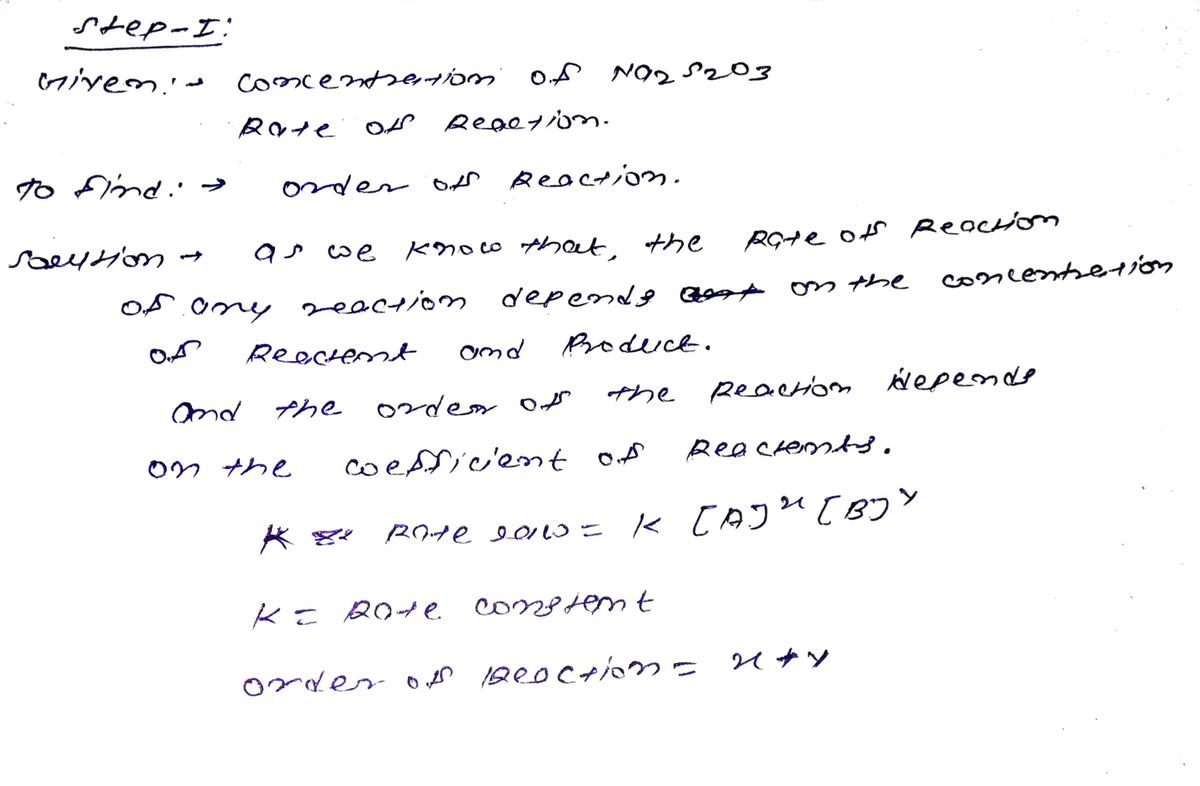 Step-I:
Given:→ Concentration of Na2S2O3
Rate of Reaction.
To find:→ order of Reaction.
Solution → as we know that, the Rate of Reaction
of any reaction depends on the concentration
of Reactant and Product.
and the order of the Reaction depends
on the coefficient of Reactants.
Rate law = K [A]^x [B]^y
K = Rate constant
order of Reaction = x + y